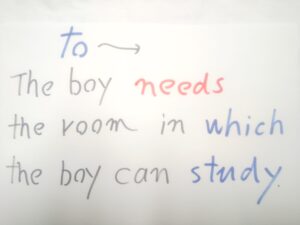 to →
The boy needs
the room in which
the boy can study.